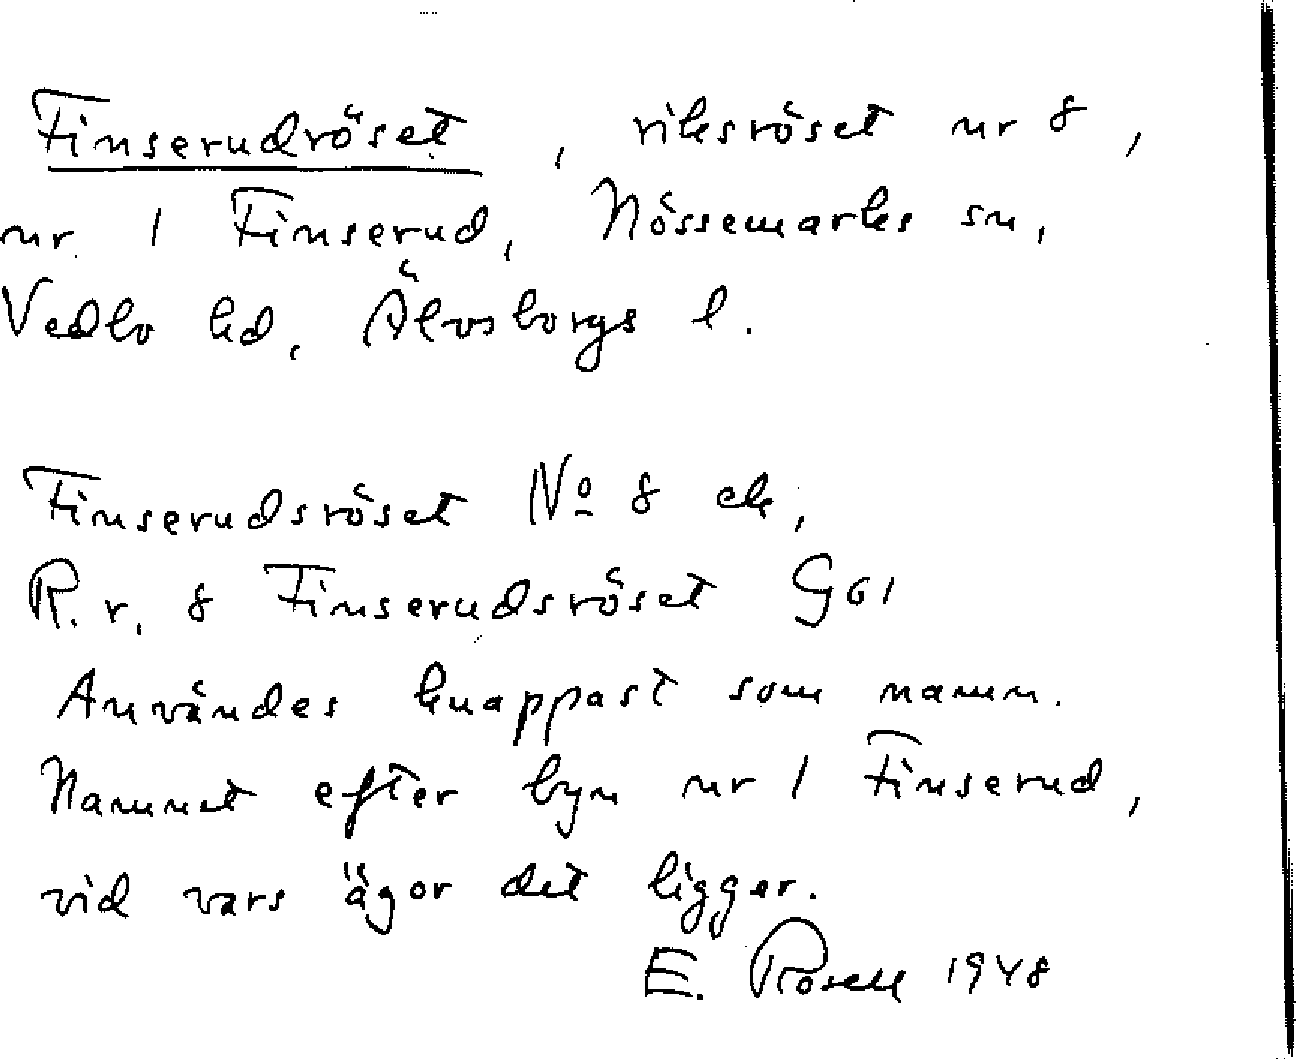 Finserudröset, riksröset nr 8,
nr 1 Finserud, Nössemarks sn,
Vedbo hd, Älvsborgs l.
Finserudsröset Nº 8 ek,
R. r. 8 Finserudsröset G61
Användes knappast som namn.
Namnet efter byn nr 1 Finserud,
vid vars ägor det ligger.
E. Rosell 1948